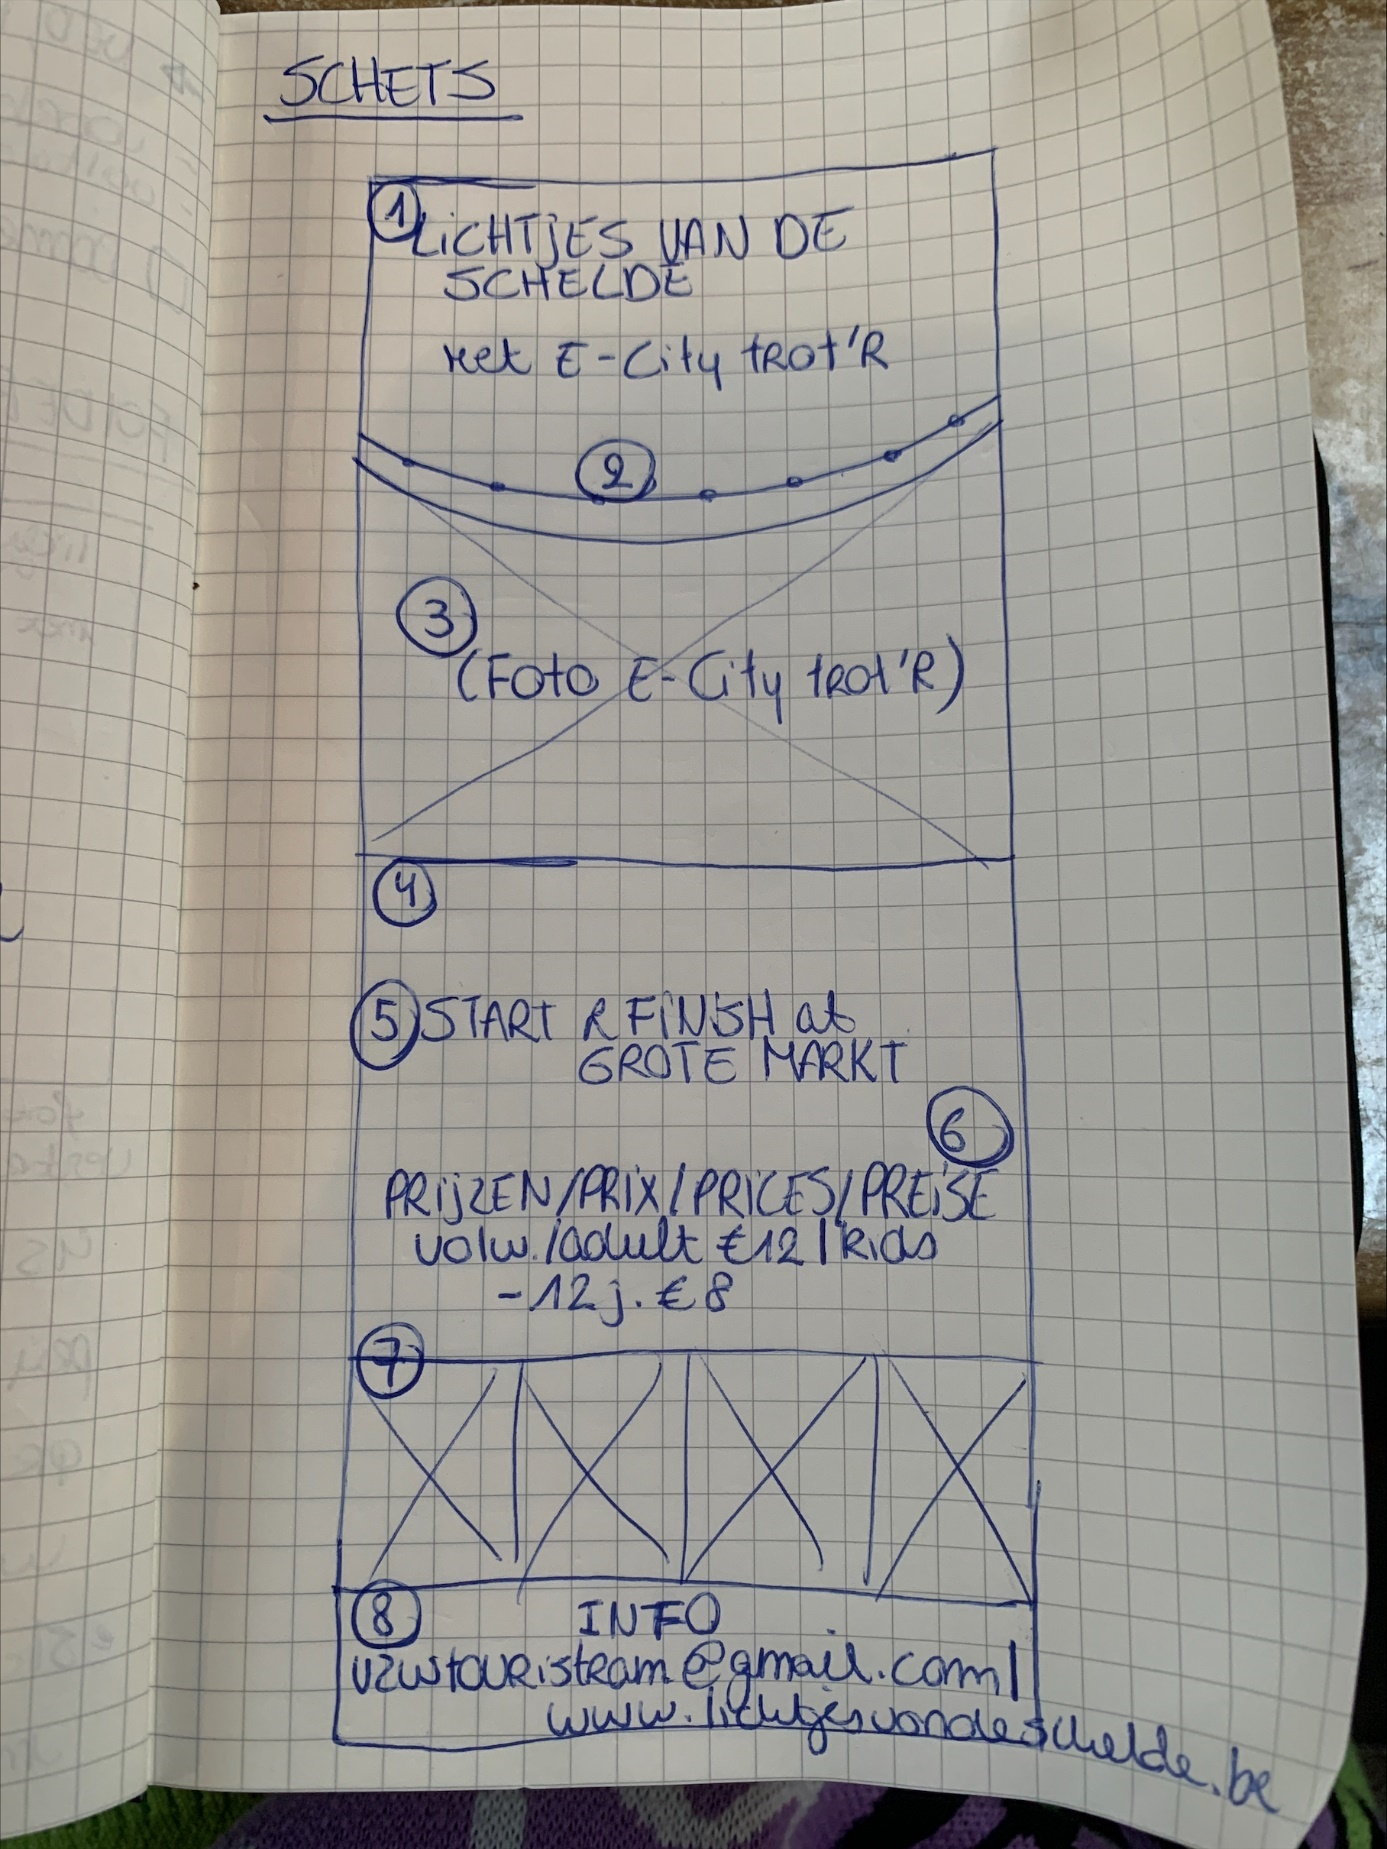 SCHETS
1 LiCHTjES VAN DE
SCHELDE
met E-City tROt'R
2
3
(Foto E-City tROt'R)
4
5 START & FiNiSH at
GROTE MARKT
6
PRijZEN/PRiX/PRiCES/PREiSE
volw./adult €12/kids
-12j. €8
7
8 INFO
vzwtouristram@gmail.com|
www.lichtjesvandeschelde.be